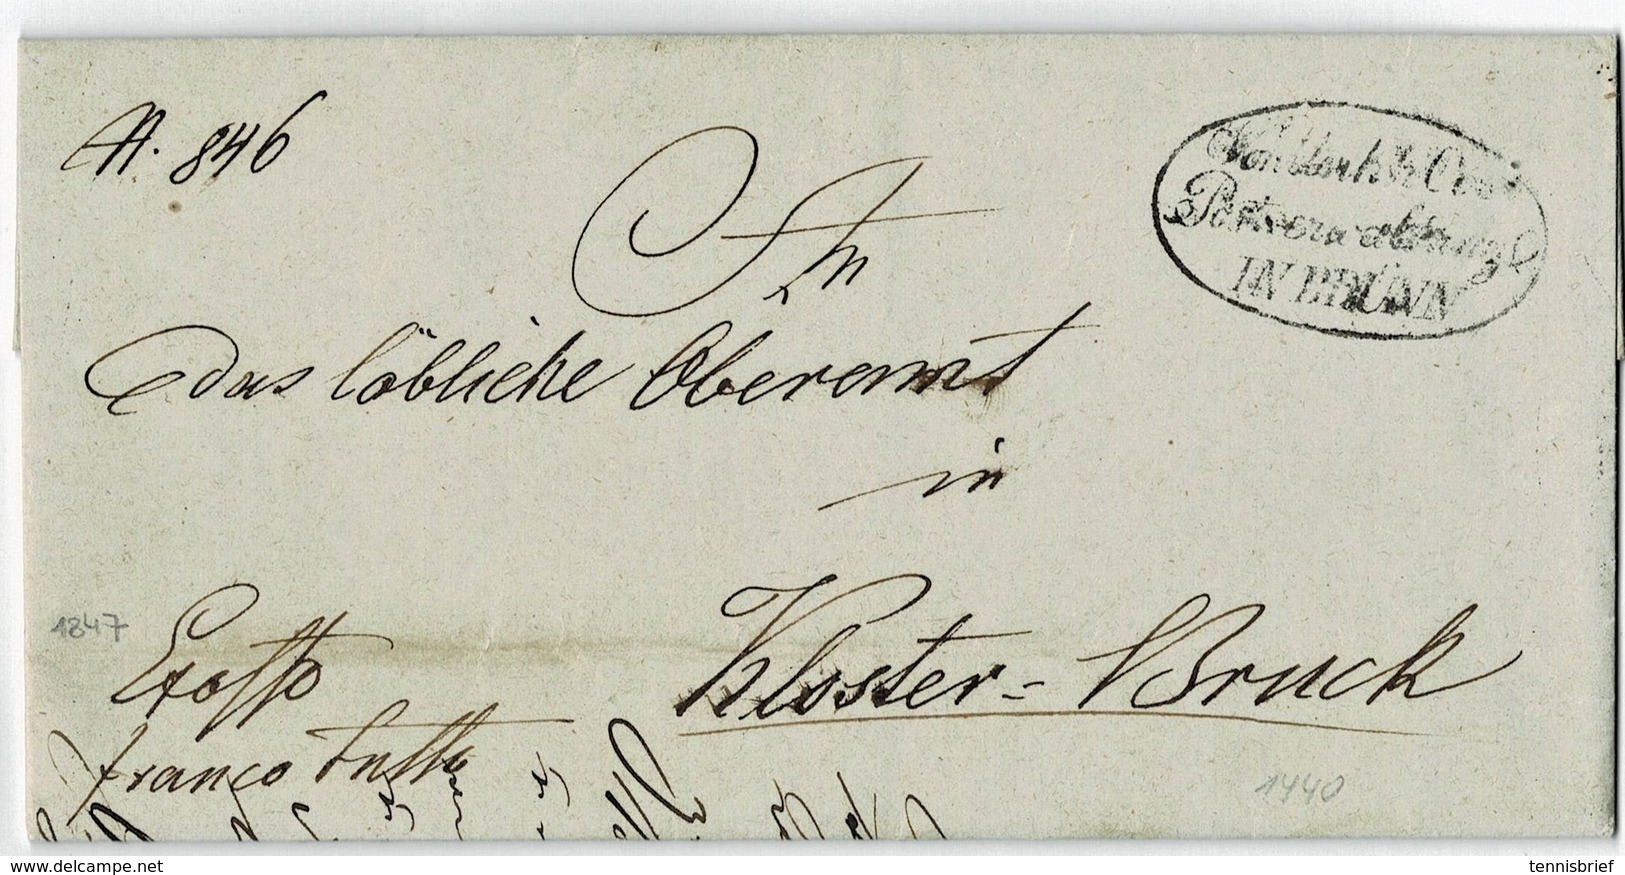 N. 846
Von der k: k: Ober
Postverwaltung
IN BRÜNN
An
das löbliche Oberamt
in
1847
Exoffo
Kloster=Bruck
franco tutto
1440
delcampe.net
tennisbrief